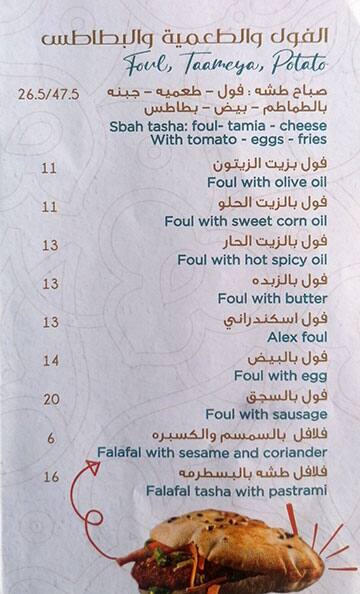 الفول والطعمية والبطاطس
Foul, Taameya, Potato
صباح طشه : فول - طعميه - جبنه 26.5/47.5
بالطماطم - بيض - بطاطس
Sbah tasha: foul- tamia - cheese
With tomato - eggs - fries
فول بزيت الزيتون 11
Foul with olive oil
فول بالزيت الحلو 11
Foul with sweet corn oil
فول بالزيت الحار 13
Foul with hot spicy oil
فول بالزبده 13
Foul with butter
فول اسكندراني 13
Alex foul
فول بالبيض 14
Foul with egg
فول بالسجق 20
Foul with sausage
فلافل بالسمسم والكسبره 6
Falafal with sesame and coriander
فلافل طشه بالبسطرمه 16
Falafal tasha with pastrami